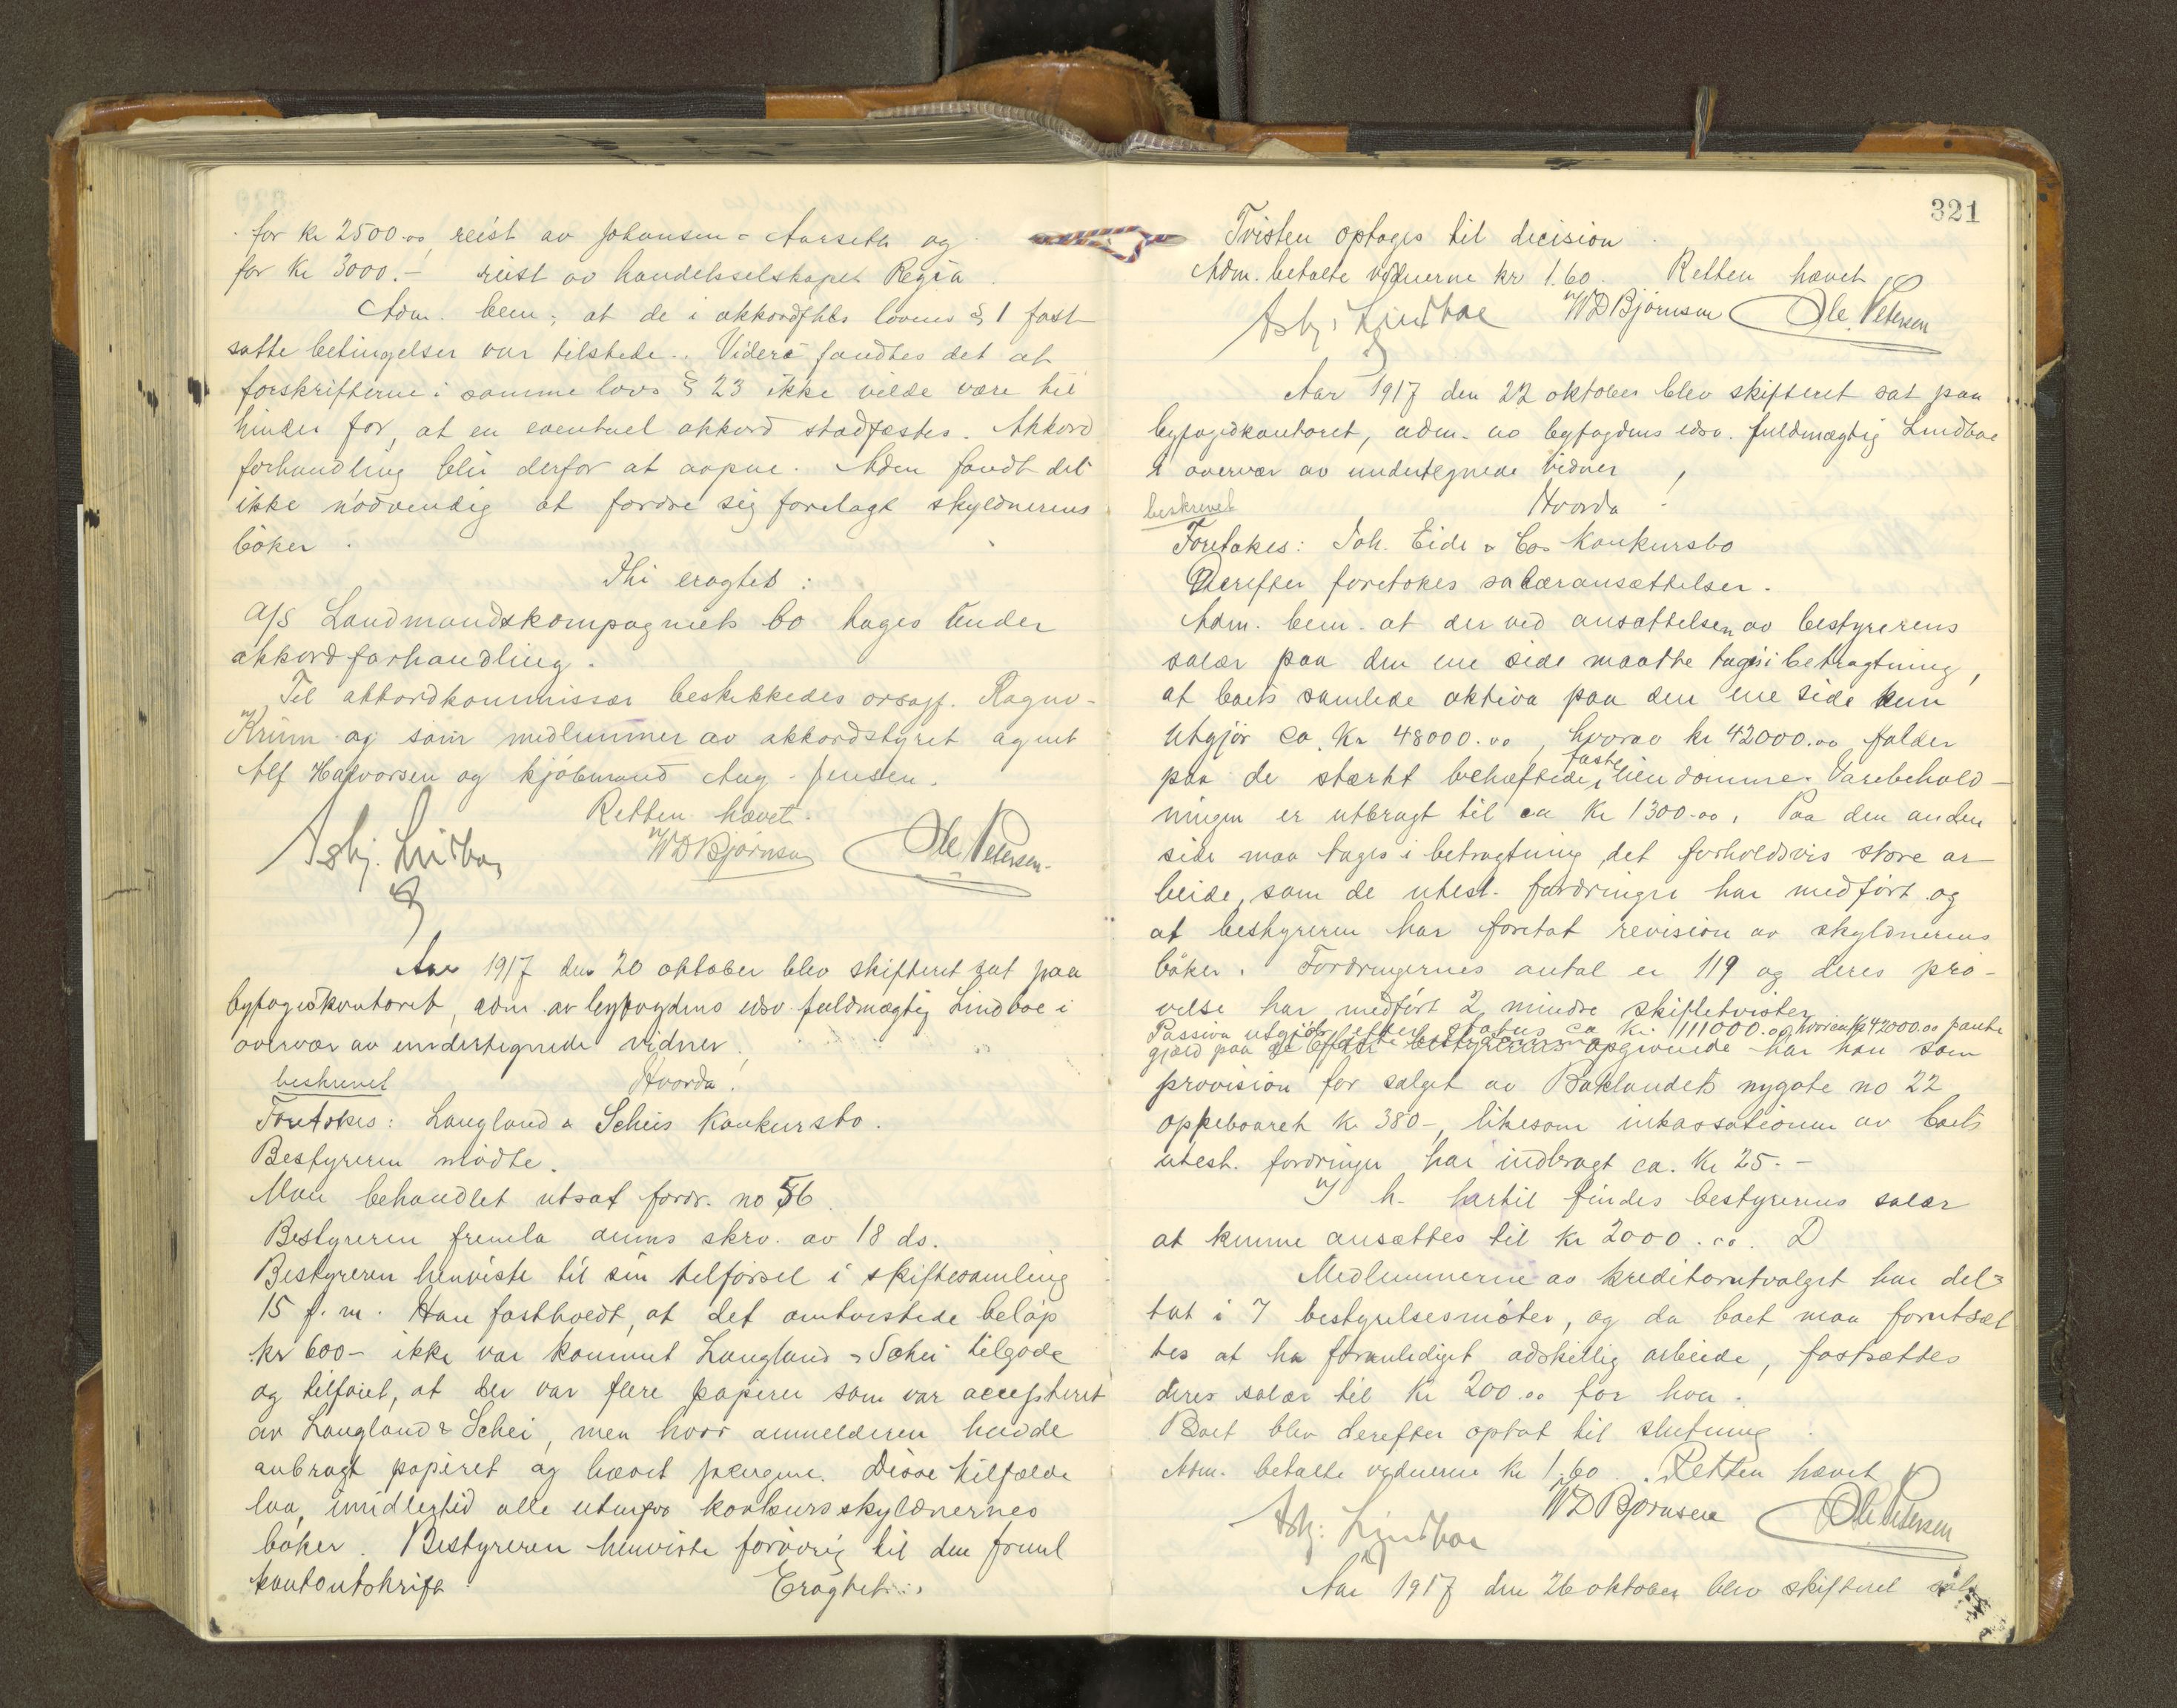 for kr 2500.00 reist av Johansen & Aarseth og
for Kr 3000.- reist av handelsselskapet Regia.
Adm. bem; at de i akkordfhls lovens § 1 fast
satte betingelser var tilstede. Videre fandtes det at
forskrifterne i samme lovs § 23 ikke vilde være til
hinder for, at en eventuel akkord stadfæstes. Akkord
forhandling blir derfor at aapne. Adm fandt det
ikke nødvendig at fordre sig forelagt skyldnerens
bøker.
Thi eragtes:
A/S Landmandskompagniets bo tages under
akkordforhandling.
Til akkordkommissær beskikkedes orsagf. Ragnv.
Krüm og som medlemmer av akkordstyret agent
Alf Halvorsen og kjøbmand Aug. Jensen.
Retten hævet.
Asbj. Lindboe WD Bjørnsen Ole Petersen.
Aar 1917 den 20 oktober blev skifteret sat paa
byfogdkontoret, adm. av byfogdens edsv. fuldmægtig Lindboe i
overvær av undertegnede vidner.
beskrevet Hvorda!
Foretokes: Langland & Scheis Konkursbo.
Bestyreren mødte.
Man behandlet utsat fordr. no 56.
Bestyreren fremla anms skrv. av 18 ds.
Bestyreren henviste til sin tilførsel i skiftesamling
15 f. m. Han fastholdt, at det omtvistede beløp
kr 600- ikke var kommet Langland & Schei tilgode
og tilføiet, at der var flere papirer som var accepteret
av Langland & Schei, men hvor anmelderen hadde
anbragt papiret og hævet pengene. Disse tilfælde
laa imidlertid alle utenfor konkursskyldnernes
bøker. Bestyreren henviste forøvrig til den freml
kontoutskrift. Eragtet:
321
Tvisten optages til decision.
Adm. betalte vidnerne kr 1.60. Retten hævet
Asbj. Lindboe WD Bjørnsen Ole Petersen
Aar 1917 den 22 oktober blev skifteret sat paa
byfogdkontoret, adm. av byfogdens edsv. fuldmægtig Lindboe
i overvær av undertegnede vidner,
beskrevet Hvorda!
Foretokes: Joh. Eide & Cos Konkursbo
Derefter foretokes salæransættelser.
Adm. bem. at der ved ansættelsen av bestyrerens
salær paa den ene side maatte tages i betragtning,
at boets samlede aktiva paa den ene side kun
utgjør ca. Kr 48000.00, hvorav kr 42000.00 falder
paa de stærkt behæftede faste eiendomme. Varebehold-
ningen er utbragt til ca Kr 1300.00. Paa den anden
side maa tages i betragtning det forholdsvis store ar
beide, som de utest. fordringer har medført og
at bestyreren har foretat revision av skyldnerens
bøker. Fordringernes antal er 119 og deres prø-
velse har medført 2 mindre skiftetvister.
Passiva utgjør efter status ca Kr. 111000.00, hvorav Kr 42000.00 pante
gjæld paa de Efter bestyrerens opgivende har han som
provision for salget av Baklandets nygate no 22
oppebaaret Kr 380-, likesom inkassationen av boets
utest. fordringer har indbragt ca. Kr 25.-
I h. hertil findes bestyrerens salær
at kunne ansættes til Kr 2000.00. D
Medlemmerne av kreditorutvalget har del-
tat i 7 bestyrelsesmøter, og da boet maa forutsæt
tes at ha foranlediget adskillig arbeide, fastsættes
deres salær til Kr 200.00 for hver.
Boet blev derefter optat til slutning.
Adm. betalte vidnerne Kr 1.60. Retten hævet
Asbj. Lindboe WD Bjørnsen Ole Petersen
Aar 1917 den 26 oktober blev skifteret sat